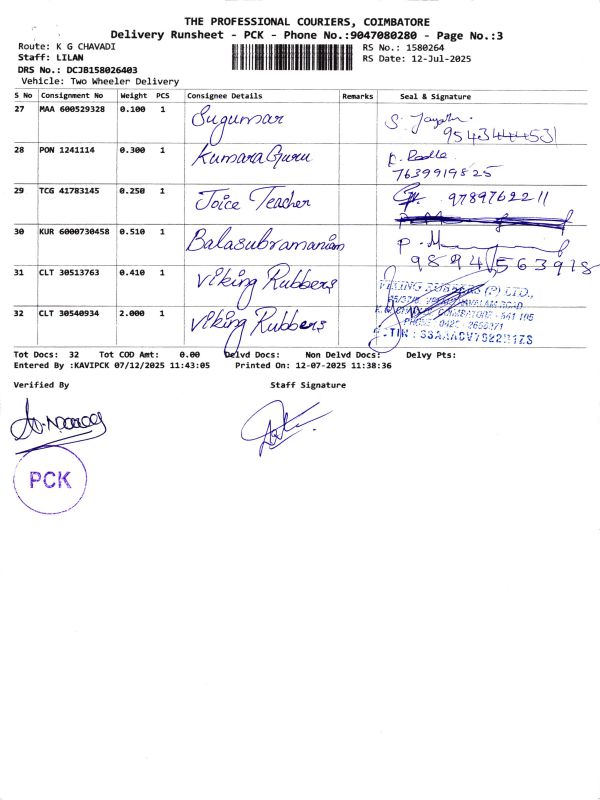 THE PROFESSIONAL COURIERS, COIMBATORE
Delivery Runsheet - PCK - Phone No.:9047080280 - Page No.:3
Route: K G CHAVADI RS No.: 1580264
Staff: LILAN RS Date: 12-Jul-2025
DRS No.: DCJB158026403
Vehicle: Two Wheeler Delivery
S No Consignment No Weight PCS Consignee Details Remarks Seal & Signature
27 MAA 600529328 0.100 1 Sugumar S. Jayanthi
28 PON 1241114 0.300 1 Kumara Guru K. Radha
7639919825
29 TCG 41783145 0.250 1 Joice Teacher 9789762211
30 KUR 6000730458 0.510 1 Balasubramaniam P. M
9894563978
31 CLT 30513763 0.410 1 Viking Rubbers VIKING RUBBERS (P) LTD.,
COIMBATORE - 641 105
32 CLT 30540934 2.000 1 Viking Rubbers PHONE : 0422 - 2656371
Tot Docs: 32 Tot COD Amt: 0.00 Delvd Docs: Non Delvd Docs: Delvy Pts:
Entered By :KAVIPCK 07/12/2025 11:43:05 Printed On: 12-07-2025 11:38:36
Verified By Staff Signature
PCK